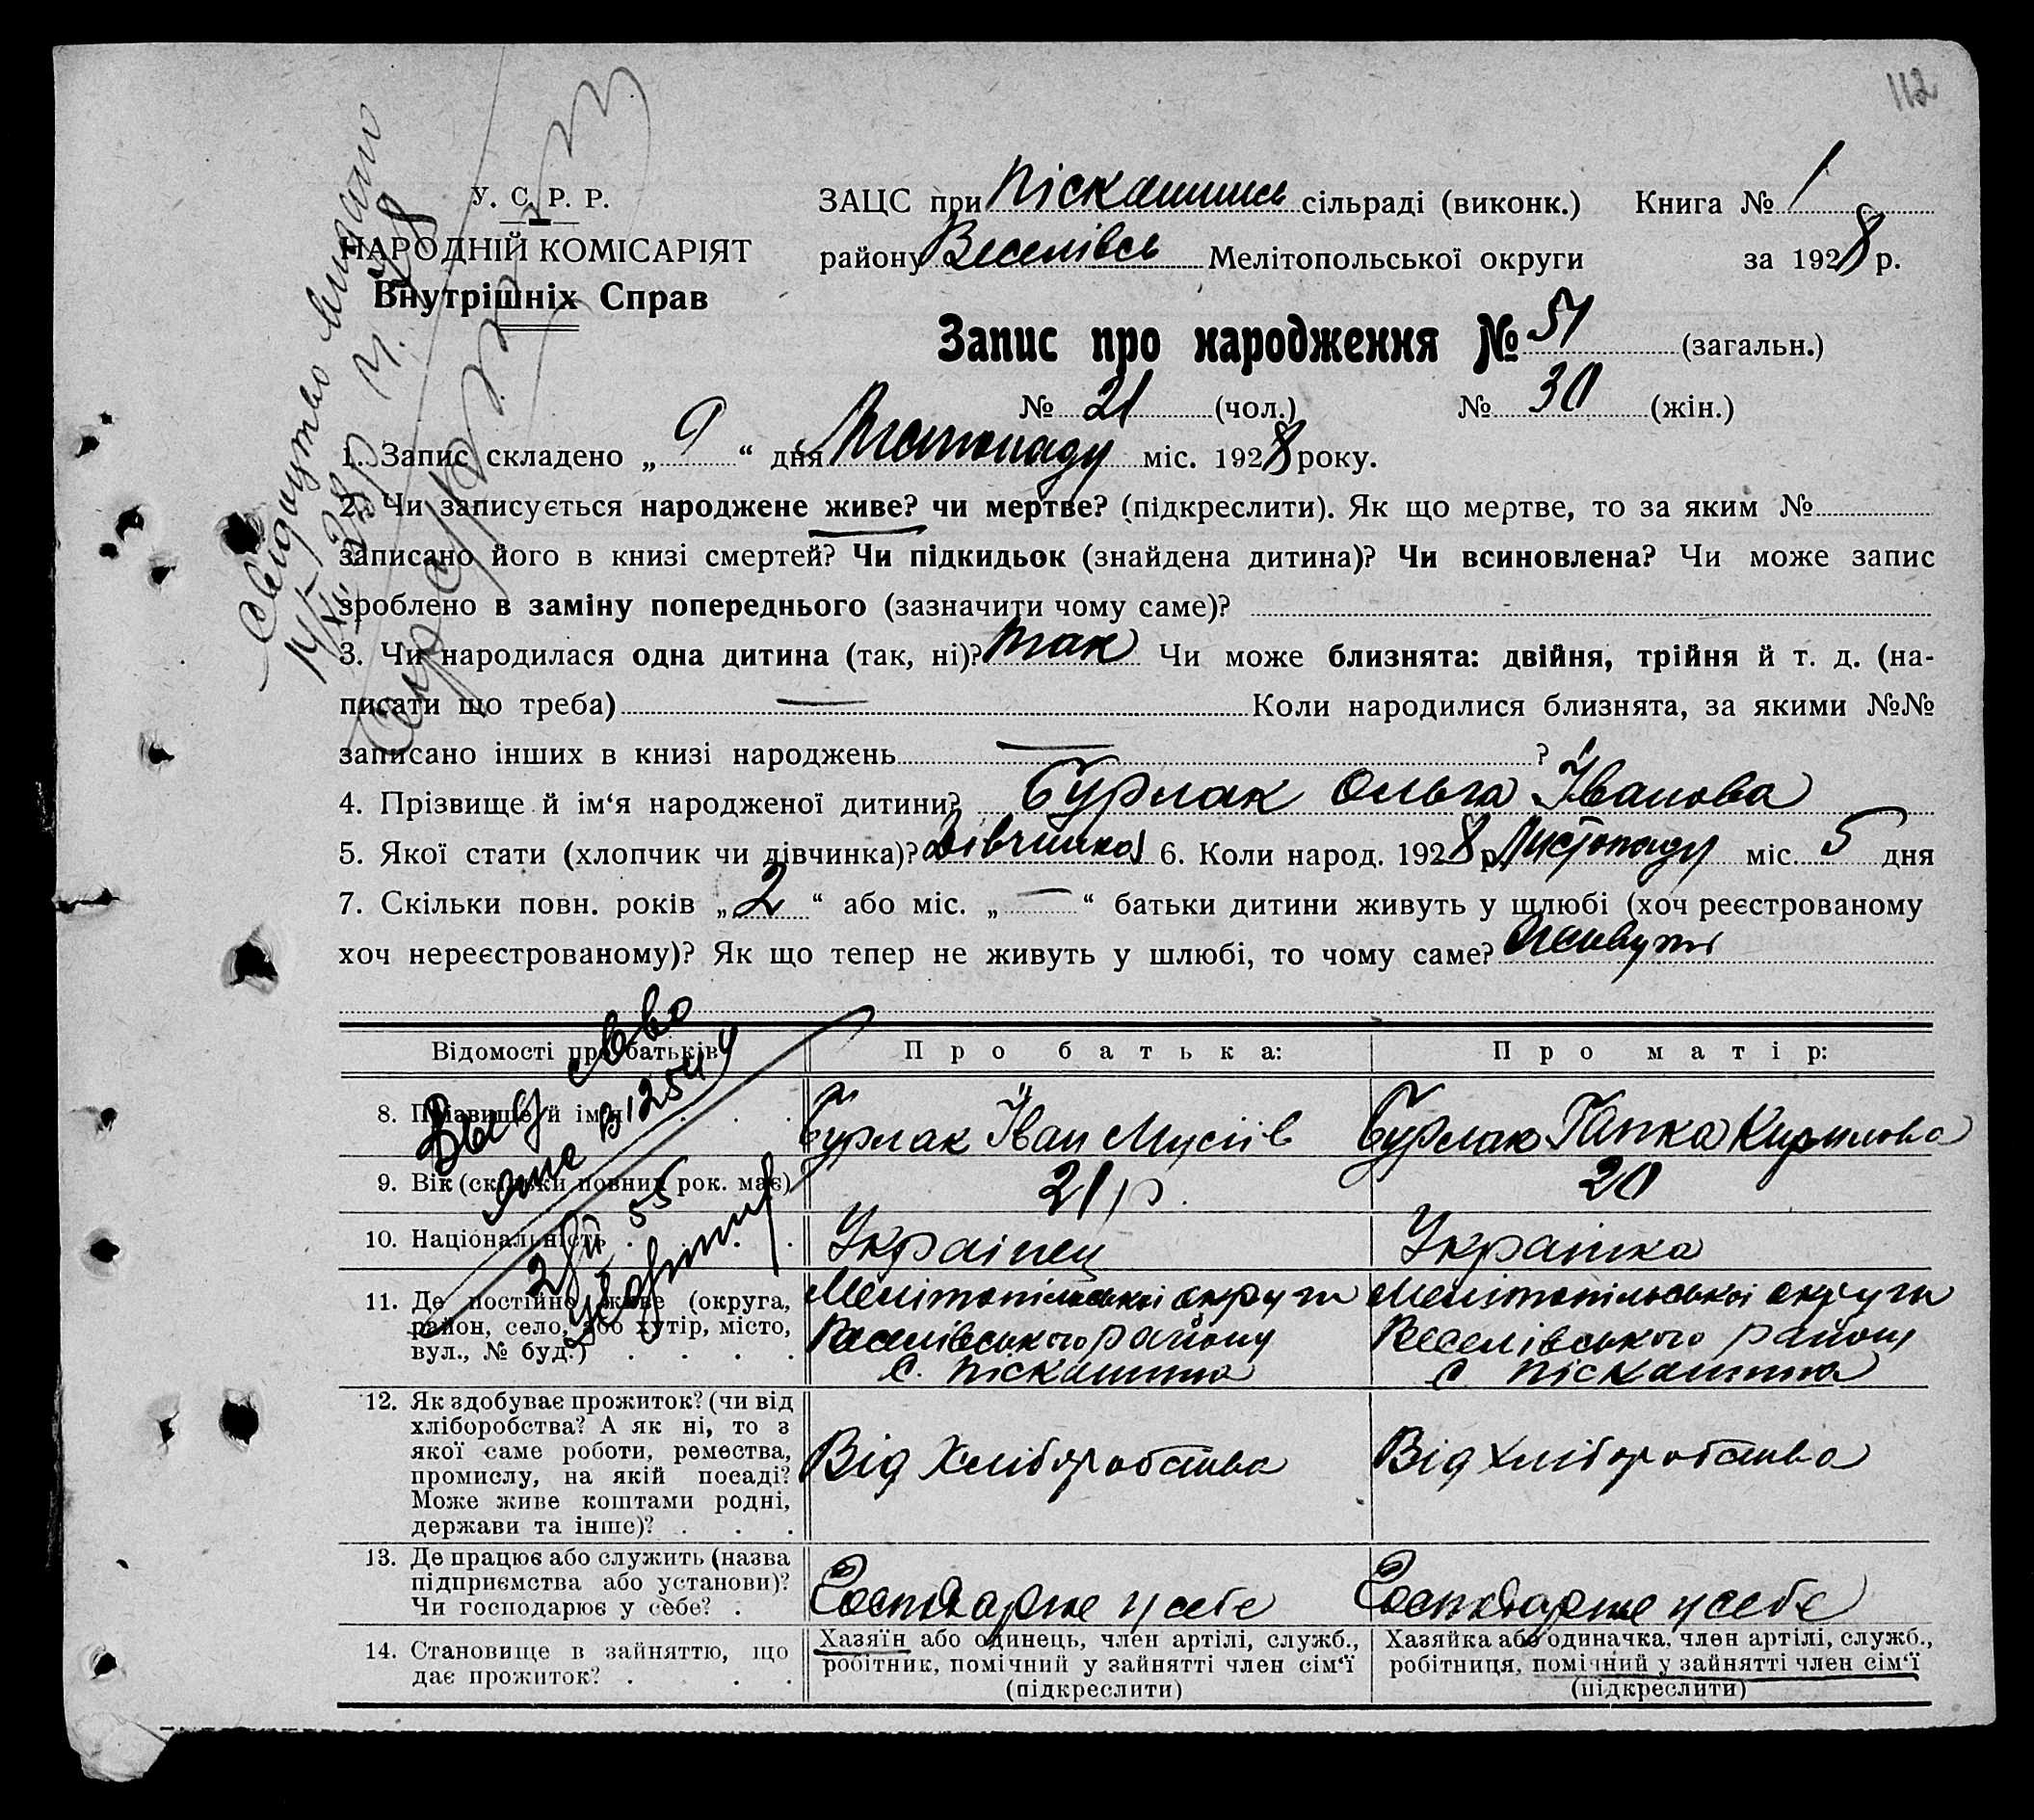 112
У. С. Р. Р.
НАРОДНІЙ КОМІСАРІЯТ
Внутрішніх Справ
ЗАЦС при Піскашинсь сільраді (виконк.) Книга № 1
району Веселівсь Мелітопольської округи за 1928 р.
Запис про народження № 51 (загальн.)
№ 21 (чол.) № 30 (жін.)
1. Запис складено „ 9 “ дня Листопаду міс. 1928 року.
2. Чи записується народжене живе? чи мертве? (підкреслити). Як що мертве, то за яким №
записано його в книзі смертей? Чи підкидьок (знайдена дитина)? Чи всиновлена? Чи може запис
зроблено в заміну попереднього (зазначити чому саме)?
3. Чи народилася одна дитина (так, ні)? так Чи може близнята: двійня, трійня й т. д. (на-
писати що треба) — Коли народилися близнята, за якими №№
записано інших в книзі народжень — ?
4. Прізвище й ім‘я народженої дитини? Бурлак Ольга Іванова
5. Якої стати (хлопчик чи дівчинка)? Дівчинка 6. Коли народ. 1928 р. Листопаду міс. 5 дня
7. Скільки повн. років „ 2 “ або міс. „ — “ батьки дитини живуть у шлюбі (хоч реєстрованому
хоч нереєстрованому)? Як що тепер не живуть у шлюбі, то чому саме? Живуть
Свидоцтво
Відомості про батьків Про батька: Про матір:
8. Прізвище й ім‘я Бурлак Іван Мусіїв Бурлак Гапка Кирилова
9. Вік (скільки повних рок. має) 21 р. 20
10. Національність Українец Українка
11. Де постійно живе (округа, район, село, або хутір, місто, вул., № буд.)
Мелітопільської округи Мелітопільської округи
Веселівського району Веселівського району
с. Піскашина с Піскашина
12. Як здобуває прожиток? (чи від
хліборобства? А як ні, то з
якої саме роботи, ремества,
промислу, на якій посаді?
Може живе коштами родні,
держави та інше)?
Від хліборобства Від хліборобства
13. Де працює або служить (назва
підприємства або установи)?
Чи господарює у себе?
Господарює у себе Господарює у себе
14. Становище в зайняттю, що
дає прожиток?
Хазяїн або одинець, член артілі, служб.,
робітник, помічний у зайнятті член сім‘ї
(підкреслити)
Хазяйка або одиначка, член артілі, служб.,
робітниця, помічний у зайнятті член сім‘ї
(підкреслити)